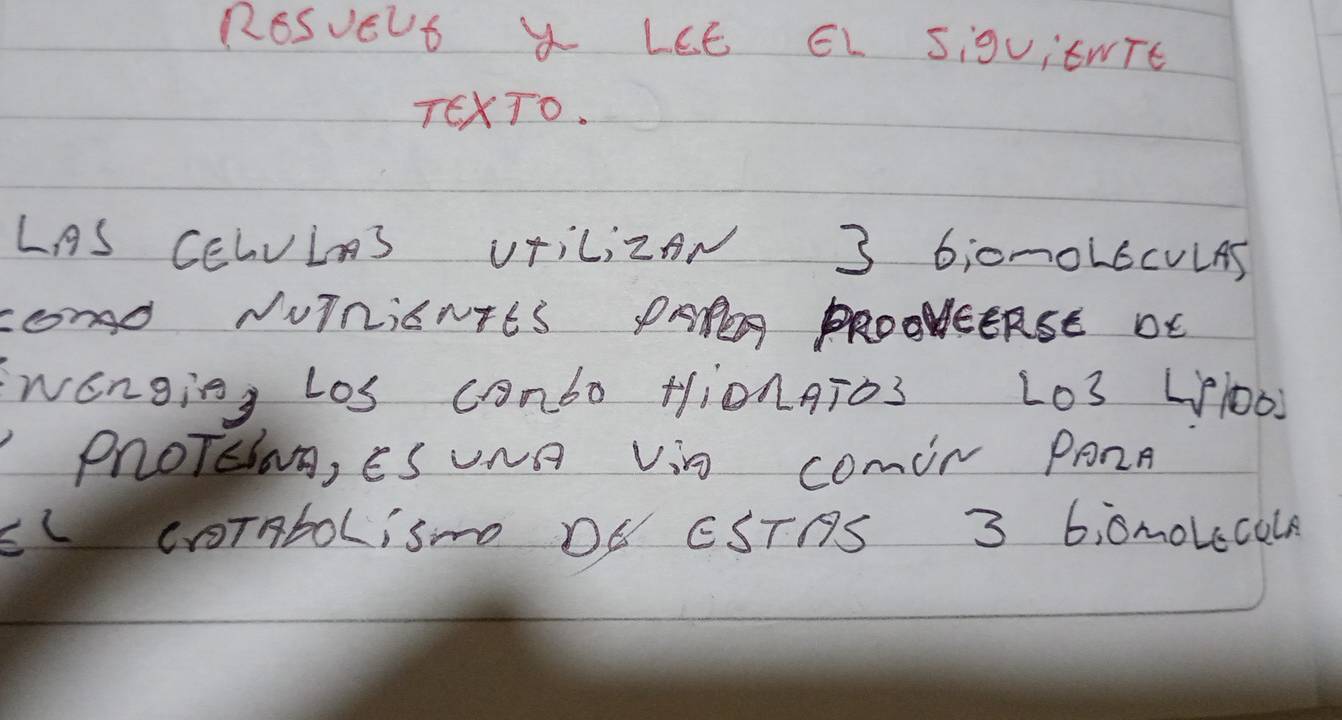 RESUELVE y LEE EL SiguiENTE
TEXTO.
LAS CELULAS utiliZAN 3 biomoLECULAS
como NUTRIENTES PARA PROOVEERSE DE
ENERgiA, LOS CARbo HiDRATOS LOS LIPIDOS
y PROTEíNA, ES UNA ViA COMÚN PARA
EL CATAboLismo DE ESTAS 3 biomoLECULA